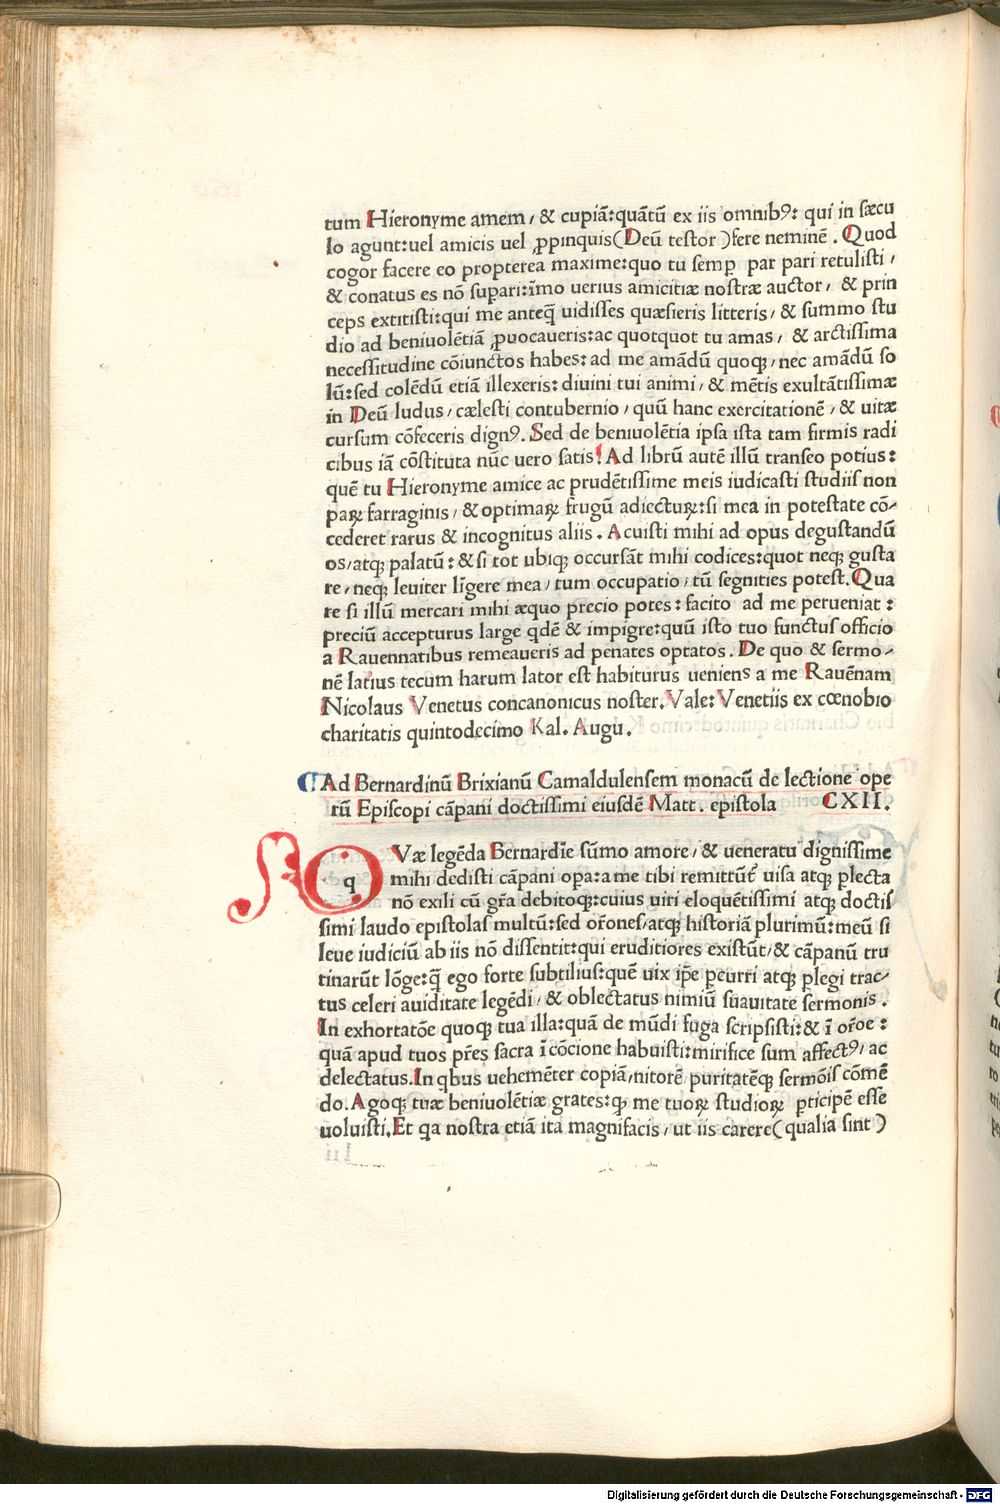 tum Hieronyme amem, & cupiā: quātū ex iis omnibꝰ: qui in sæcu
lo agunt: uel amicis uel ꝓpinquis (Deū testor) fere neminē. Quod
cogor facere eo propterea maxime: quo tu semꝑ par pari retulisti,
& conatus es nō supari: īmo uerius amicitiæ nostræ auctor, & prin
ceps extitisti: qui me anteq̄ uidisses quæsieris litteris, & summo stu
dio ad beniuolētiā ꝓuocaueris: ac quotquot tu amas, & arctissima
necessitudine cōiunctos habes: ad me amādū quoqꝫ, nec amādū so
lū: sed colēdū etiā illexeris: diuini tui animi, & mētis exultātissimæ
in Deū ludus, cælesti contubernio, quū hanc exercitationē, & uitæ
cursum cōfeceris dignꝰ. Sed de beniuolētia ipsa ista tam firmis radi
cibus iā cōstituta nūc uero satis! Ad librū autē illū transeo potius:
quē tu Hieronyme amice ac prudētissime meis iudicasti studiis non
paꝝ farraginis, & optimaꝝ frugū adiectuꝝ: si mea in potestate cō-
cederet rarus & incognitus aliis. Acuisti mihi ad opus degustandū
os, atqꝫ palatū: & si tot ubiqꝫ occursāt mihi codices: quot neqꝫ gusta
re, neqꝫ leuiter līgere mea, tum occupatio, tū segnities potest. Qua
re si illū mercari mihi æquo precio potes: facito ad me perueniat:
preciū accepturus large qdē & impigre: quū isto tuo functus officio
a Rauennatibus remeaueris ad penates optatos. De quo & sermo-
nē latius tecum harum lator est habiturus ueniens a me Rauēnam
Nicolaus Venetus concanonicus noster. Vale: Venetiis ex cœnobio
charitatis quintodecimo Kal. Augu.
Ad Bernardinū Brixianū Camaldulensem monacū de lectione ope
rū Episcopi cāpani doctissimi eiusdē Matt. epistola CXII.
q Væ legēda Bernardīe sūmo amore, & ueneratu dignissime
mihi dedisti cāpani opa: a me tibi remittūt̄ uisa atqꝫ plecta
nō exili cū gr̄a debitoqꝫ: cuius uiri eloquētissimi atqꝫ doctis
simi laudo epistolas multū: sed or̄ones, atqꝫ historiā plurimū: meū si
leue iudiciū ab iis nō dissentit: qui eruditiores existūt, & cāpanū tru
tinarūt lōge: q̄ ego forte subtilius: quē uix ip̄e ꝑcurri atqꝫ plegi trac-
tus celeri auiditate legēdi, & oblectatus nimiū suauitate sermonis.
In exhortatōe quoqꝫ tua illa: quā de mūdi fuga scripsisti: & ī or̄oe:
quā apud tuos pr̄es sacra ī cōcione habuisti: mirifice sum affectꝰ, ac
delectatus. In qbus uehemēter copiā, nitorē, puritatēqꝫ sermōis cōmē
do. Ago qꝫ tuæ beniuolētiæ grates: ꝙ me tuoꝝ studioꝝ ꝑticipē esse
uoluisti. Et qa nostra etiā ita magnifacis, ut iis carere (qualia sint)
Digitalisierung gefördert durch die Deutsche Forschungsgemeinschaft - DFG